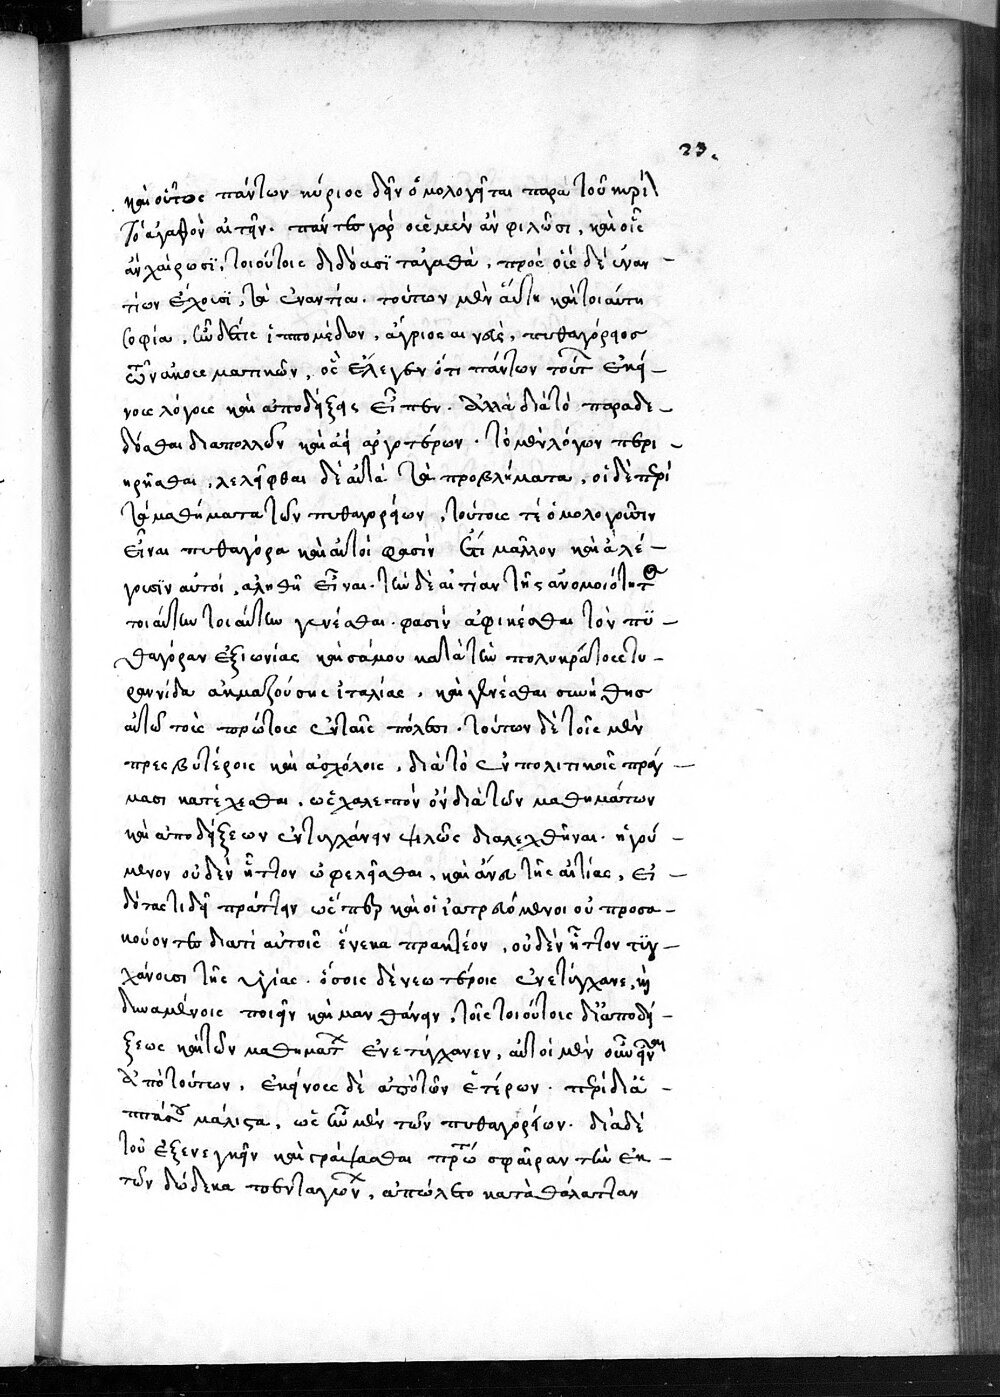 23.
καὶ οὕτως πάντων κύριος δεῖν ὁμολογῆται παρὰ τοῦ κυρίλ
τὸ ἀγαθὸν αἰτεῖν. πάντες γὰρ οὓς μὲν ἂν φιλῶσι, καὶ οἷς
ἂν χαίρωσι, τοιούτοις διδόασι τἀγαθὰ, πρὸς οὓς δὲ ἐναν-
τίων ἔχουσι, τὰ ἐναντία. τούτων μὲν αὕτη καὶ τοιαύτη
σοφία, ὧν δέ τις ἱππομέδων, ἄγριος αἰ πυθαγόρειος
τῶν ἀκουσματικῶν, ὃς ἔλεγεν ὅτι πάντων τούτ ἐκεῖ-
νος λόγους καὶ ἀποδείξεις εἶπεν. ἀλλὰ διὰ τὸ παραδε-
δόσθαι διὰ πολλῶν καὶ ἀεὶ ἀργοτέρων. τὸ μὲν λόγον περι-
ηρῆσθαι, λελεῖφθαι δὲ αὐτὰ τὰ προβλήματα, οἱ δὲ περὶ
τὰ μαθήματα τῶν πυθαγορείων, τούτους τέ ὁμολογοῦσιν
εἶναι πυθαγόρα καὶ αὐτοί φασὶν ἔτι μᾶλλον καὶ ἃ λέ-
γουσιν αὐτοί, ἀληθῆ εἶναι. τὴν δὲ αἰτίαν τῆς ἀνομοιότητ
τοιαύτην γενέσθαι. φασὶν ἀφικέσθαι τὸν πυ-
θαγόραν ἐξ ἰωνίας καὶ σάμου κατὰ τὴν πολυκράτους τυ-
ραννίδα ἀκμαζούσης ἰταλίας, καὶ γενέσθαι συνήθης
αὐτῷ τοὺς πρώτους ἐν ταῖς πόλεσι. τούτων δὲ τοῖς μὲν
πρεσβυτέροις καὶ ἀσχόλοις, διὰ τὸ ἐν πολιτικοῖς πράγ-
μασι κατέχεσθαι, ὡς χαλεπὸν ὂν διὰ τῶν μαθημάτων
καὶ ἀποδείξεων ἐντυγχάνειν ψιλῶς διαλεχθῆναι. ἡγού-
μενον οὐδὲν ἧττον ὠφελεῖσθαι, καὶ ἄνευ τῆς αἰτίας, εἰ-
δότας τί δεῖ πράττειν ὥσπερ καὶ οἱ ἰατρευόμενοι οὐ προσα-
κούοντες διατί αὐτοῖς ἕνεκα πρακτέον, οὐδὲν ἧττον τυγ-
χάνουσι τῆς ὑγίας. ὅσοις δὲ νεωτέροις ἐνετύγχανε, καὶ
δυναμένοις ποιεῖν καὶ μανθάνειν, τοῖς τοιούτοις δι' ἀποδεί-
ξεως καὶ τῶν μαθημάτ ἐνετύγχανεν, αὐτοὶ μὲν οὖν
ἀπὸ τούτων, ἐκείνους δὲ ἀπὸ τῶν ἑτέρων. περὶ δ' ἱ-
ππάσου μάλιστα, ὡς ὢν μὲν τῶν πυθαγορείων. διὰ δὲ
τοῦ ἐξενεγκεῖν καὶ γράψασθαι πρώτ σφαῖραν τὴν ἐκ-
τῶν δώδεκα πενταγών, ἀπώλετο κατὰ θάλατταν